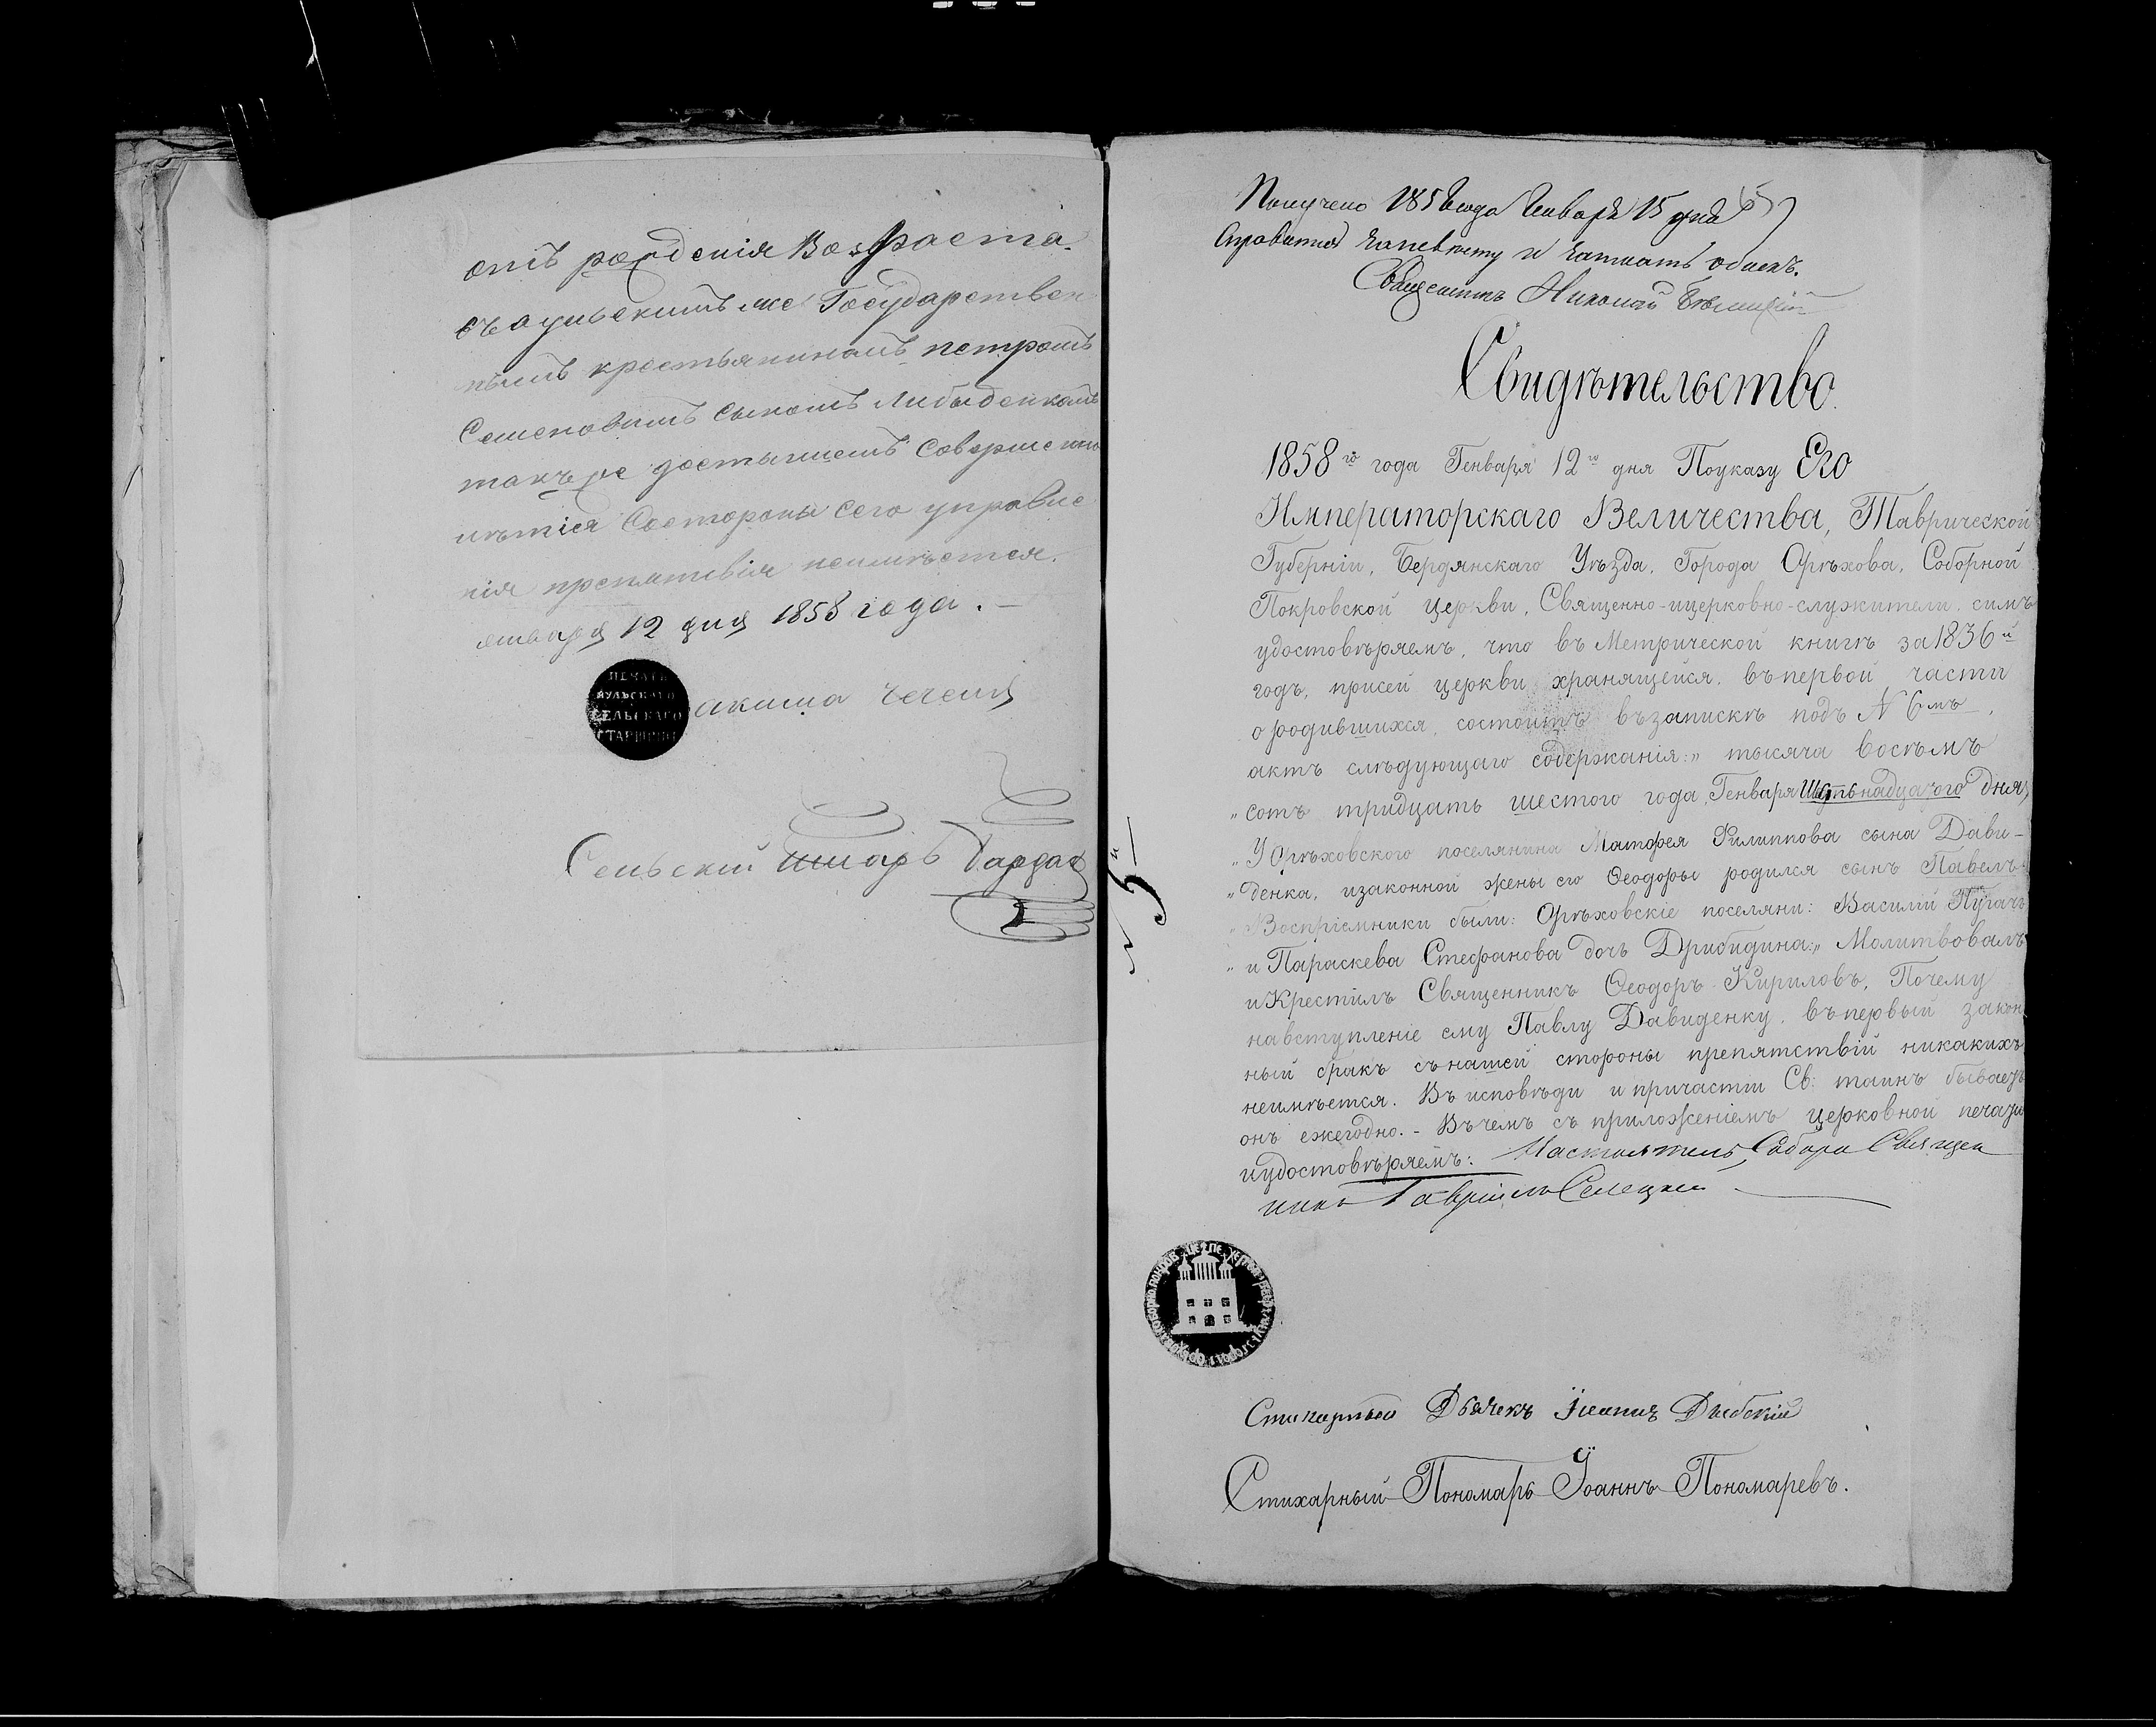 отъ рожденія Возраста.
съ аульскимъ же Государствен
нымъ крестьяниномъ петромъ
Семеновимъ сыномъ Либыденкомъ
такъ же достигшемъ Совершенно
лѣтія Состороны сего управле
нія препятствія неимѣется.
января 12 дня 1858 года. —
ПЕЧАТЬ
АУЛЬСКАГО
СЕЛЬСКАГО
СТАРШИНЫ
акима
Сельскій писарь
№ 5й
Получено 1858 года Января 15 дня
и
Священникъ Николай
Свидѣтельство.
1858го года Генваря 12го дня Поуказу Его
Императорскаго Величества, Таврической
Губерніи, Бердянскаго Уѣзда, Города Орѣхова, Соборной
Покровской церкви, Священно-ицерковно-служители, симъ
удостовѣряемъ, что въ Метрической книгѣ за 1836й
годъ, присей церкви хранящейся, въпервой части
ородившихся, состоитъ възапискѣ подъ № 6мъ,
актъ слѣдующаго содержанія: „ тысяча восѣмъ
„ сотъ тридцать шестого года, Генваря Шестьнадцатого дня,
„ У Орѣховского поселянина Матфея Филиппова сына Дави-
„ денка, изаконной жены его Ѳеодоры родился сынъ Павелъ.
„ Воспріемники были: Орѣховскіе поселяни: Василій Пугачъ
„ и Параскева Стефанова дочь Дрибидина: „ Молитвовалъ
иКрестилъ Священникъ Ѳеодоръ Кириловъ, Почему
навступленіе ему Павлу Давиденку, въпервый закон
ный бракъ сънашей стороны препятствій никакихъ
неимѣется. Въ исповѣди и причастіи Св: таинъ бываетъ
онъ ежегодно. - Въчемъ съ приложеніемъ церковной печати
иудостовѣряемъ: Настоятель Собора Священ
никъ Гавріилъ Селецкій
Стихарный Дьячекъ Іоаннъ
Стихарный Пономарь Іоаннъ Пономаревъ.